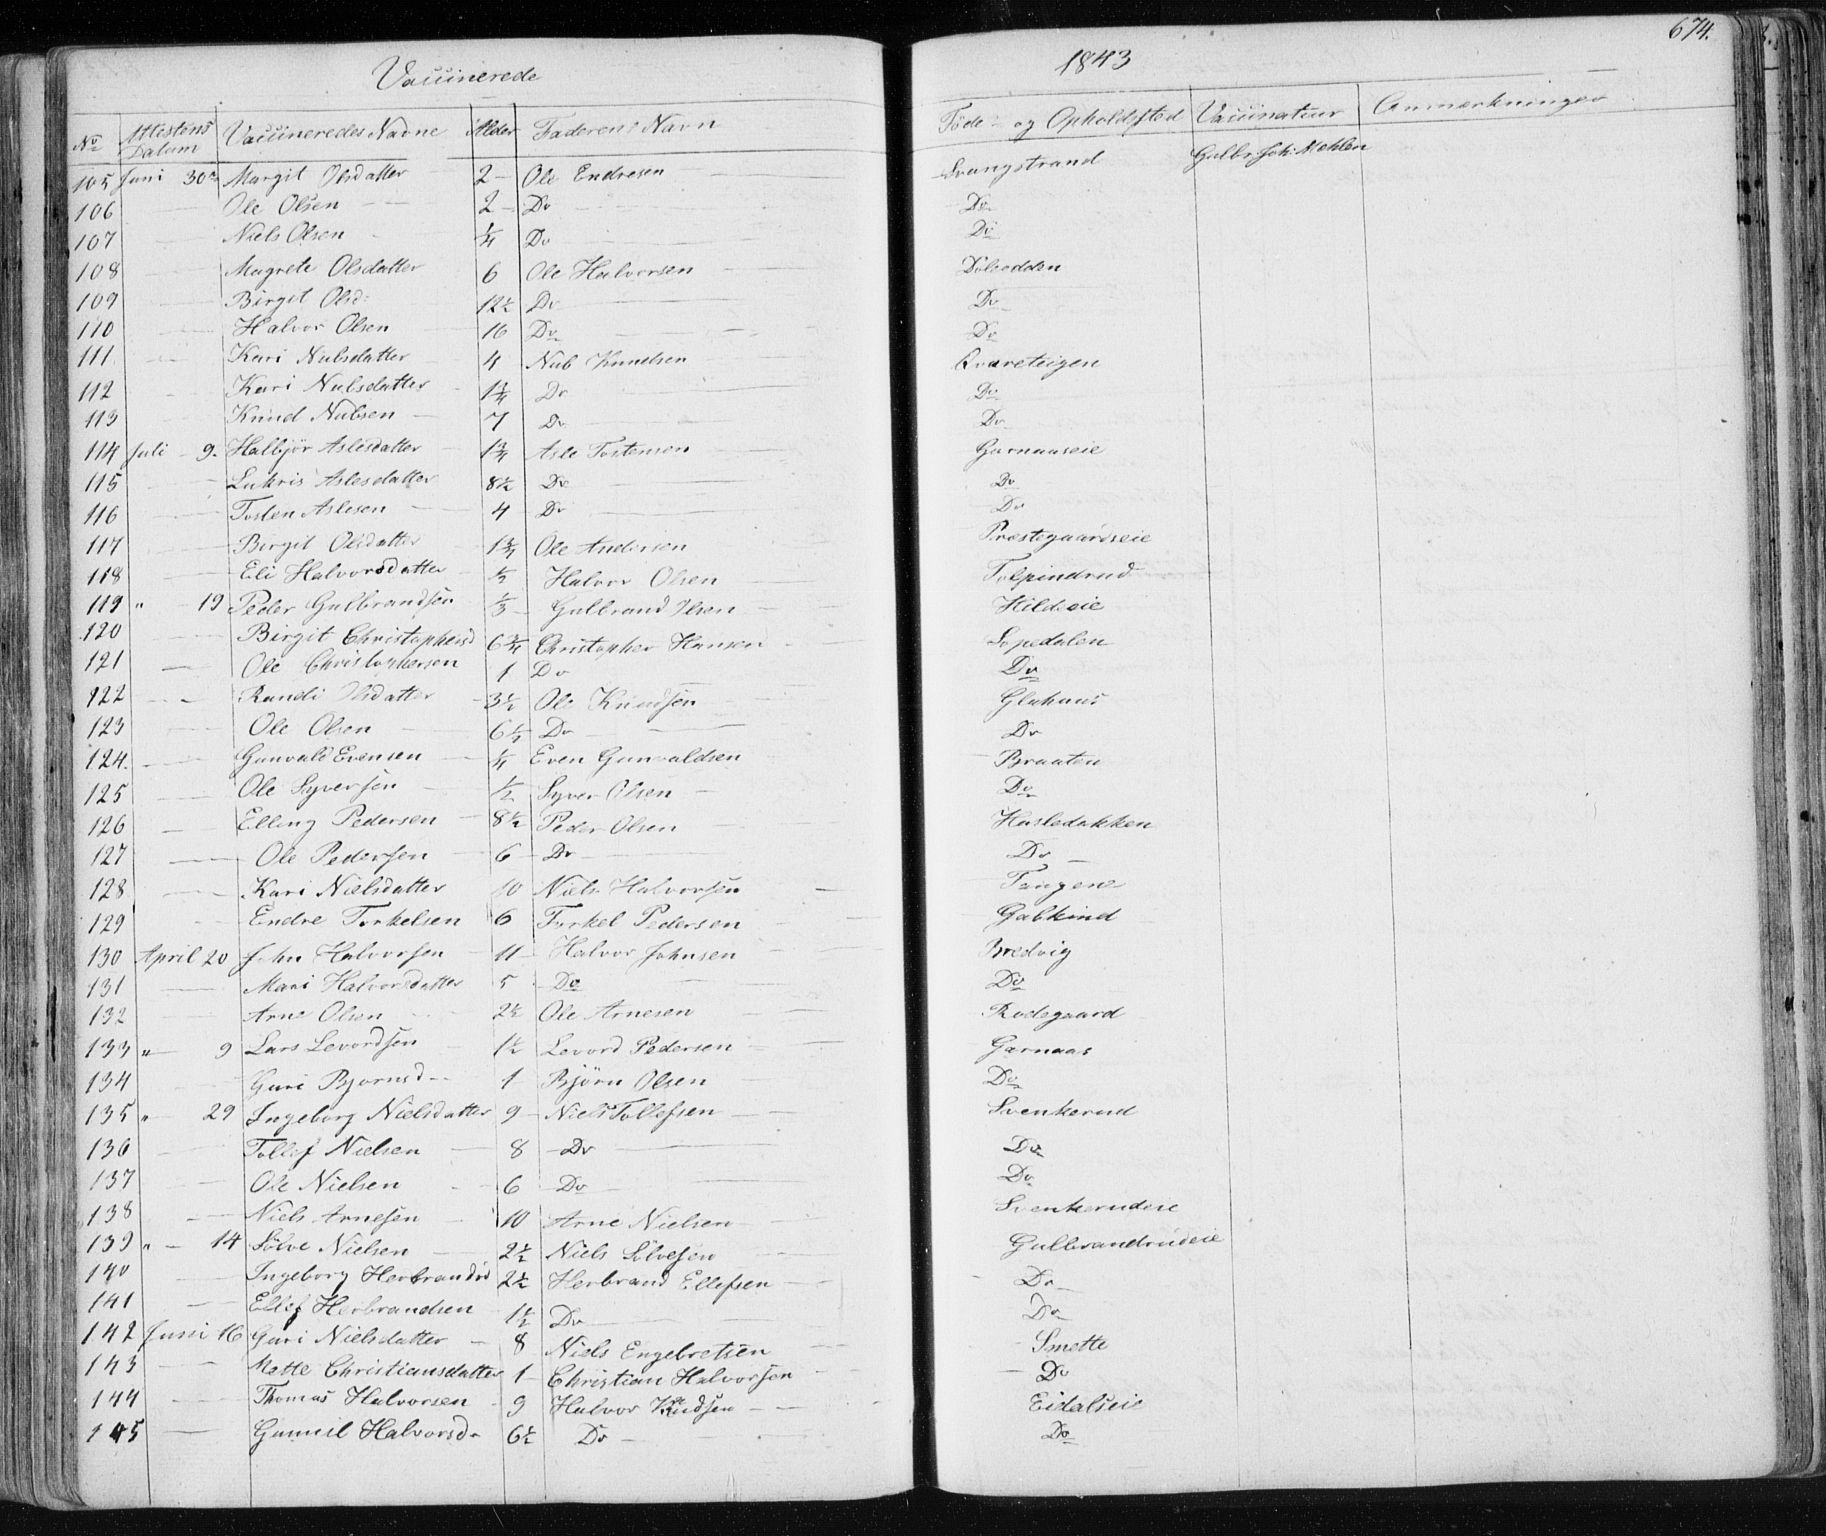 674.
Vaccinerede 1843
No Attestens Datum Vaccineredes Navne Alder Faderens Navn Føde- og Opholdssted Vaccinatuur Anmærkninger
105 Juni 30 Margit Olsdatter 2 Ole Endresen Svangstrand Gulbr. Joh: Mehlen
106 Ole Olsen 2 Do Do
107 Niels Olsen 1/4 Do Do
108 Magrete Olsdatter 6 Ole Halvorsen
109 Birgit Olsd: 12 1/2 Do Do
110 Halvor Olsen 16 Do Do
111 Kari Nubsdatter 4 Nub Knudsen Qvareteigen
112 Kari Nubsdatter 1 3/4 Do Do
113 Knud Nubsen 7 Do Do
114 Juli 9. Halbjør Aslesdatter 1 3/4 Asle Tostensen Garnaaseie
115 Lukris Aslesdatter 8 1/2 Do Do
116 Tosten Aslesen 4 Do Do
117 Birgit Olsdatter 1 3/4 Ole Andersen Præstegaardseie
118 Eli Halvorsdatter 1/2 Halvor Olsen Tolpinrud
119 " 19 Peder Gulbrandsen 1/3 Gulbrand Olsen Hildseie
120 Birgit Christophersd 6 3/4 Christopher Hansen Sopedalen
121 Ole Christophersen 1 Do Do
122 Randi Olsdatter 3 1/2 Ole Knudsen Glahaus
123 Ole Olsen 6 1/2 Do Do
124. Gunvald Evensen 1/4 Even Gunvaldsen Braaten
125 Ole Syversen 1/2 Syver Olsen Do
126 Elling Pedersen 8 1/2 Peder Olsen Hasledokken
127 Ole Pedersen 6 Do Do
128 Kari Nielsdatter 10 Niels Halvorsen Tangene
129 Endre Torkelsen 6 Torkel Pedersen Galkind
130 April 20 John Halvorsen 11 Halvor Johnsen Bredvig
131 Mari Halvorsdatter 5 Do Do
132 Arne Olsen 2 1/2 Ole Arnesen Rodegaard
133 " 9 Lars Levordsen 1 1/2 Levord Pedersen Garnaas
134 Guri Bjornsd 1 Bjørn Olsen Do
135 " 29 Ingeborg Nielsdatter 9 Niels Tollefsen Svenkerud
136 Tollef Nielsen 8 Do Do
137 Ole Nielsen 6 Do Do
138 Niels Arnesen 10 Arne Nielsen Svenkerudeie
139 " 14 Sølve Nielsen 2 1/2 Niels Sølvesen Gulbrandrudeie
140 Ingeborg Herbrandsd 2 1/2 Herbrand Ellefsen Do
141 Ellef Herbrandsen 1 1/2 Do Do
142 Juni 16 Guri Nielsdatter 8 Niels Engebretsen Smette
143 Mette Christiansdatter 1 Christian Halvorsen Do
144 Thomas Halvorsen 9 Halvor Knudsen Eidalseie
145 Gunnil Halvorsd. 6 1/2 Do Do